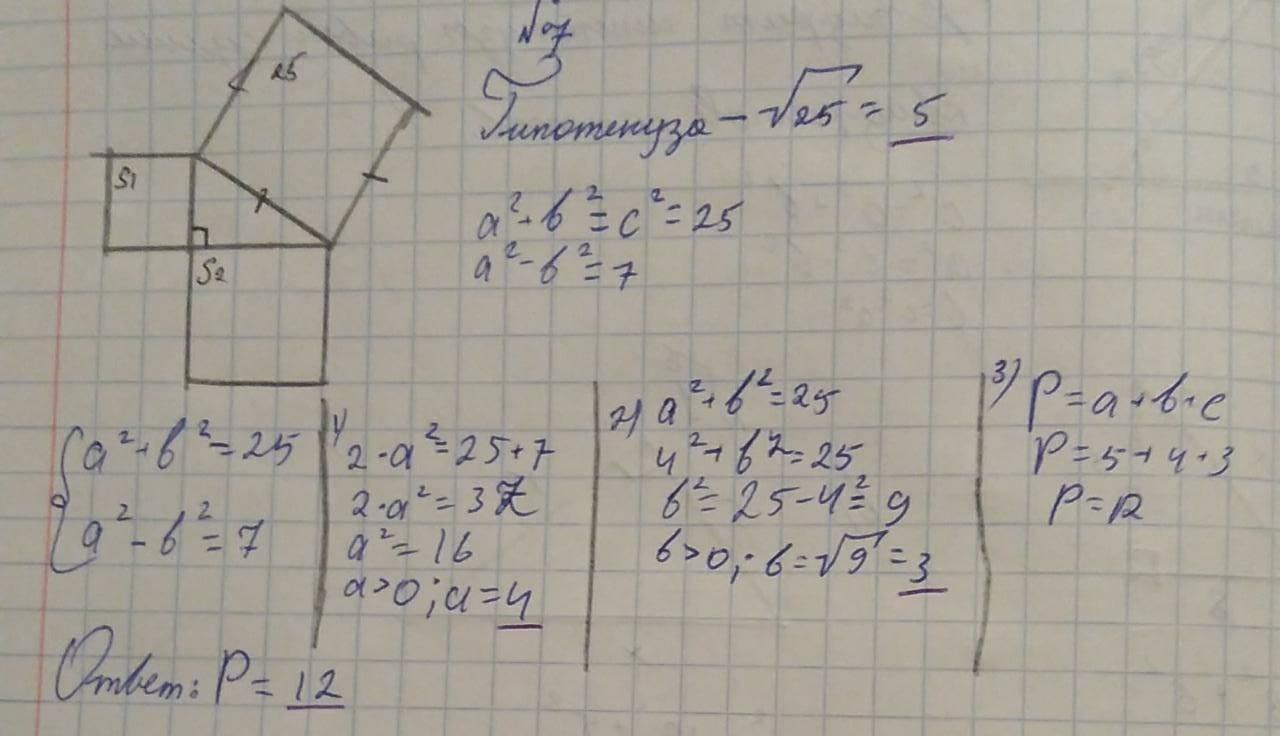 №7
25
S1
S2
Гипотенуза - √25 = 5
a² + b² = c² = 25
a² - b² = 7
a² + b² = 25
a² - b² = 7
1)
2·a² = 25 + 7
2·a² = 32
a² = 16
a > 0; a = 4
2) a² + b² = 25
4² + b² = 25
b² = 25 - 4² = 9
b > 0; b = √9 = 3
3) P = a + b + c
P = 5 + 4 + 3
P = 12
Ответ: P = 12